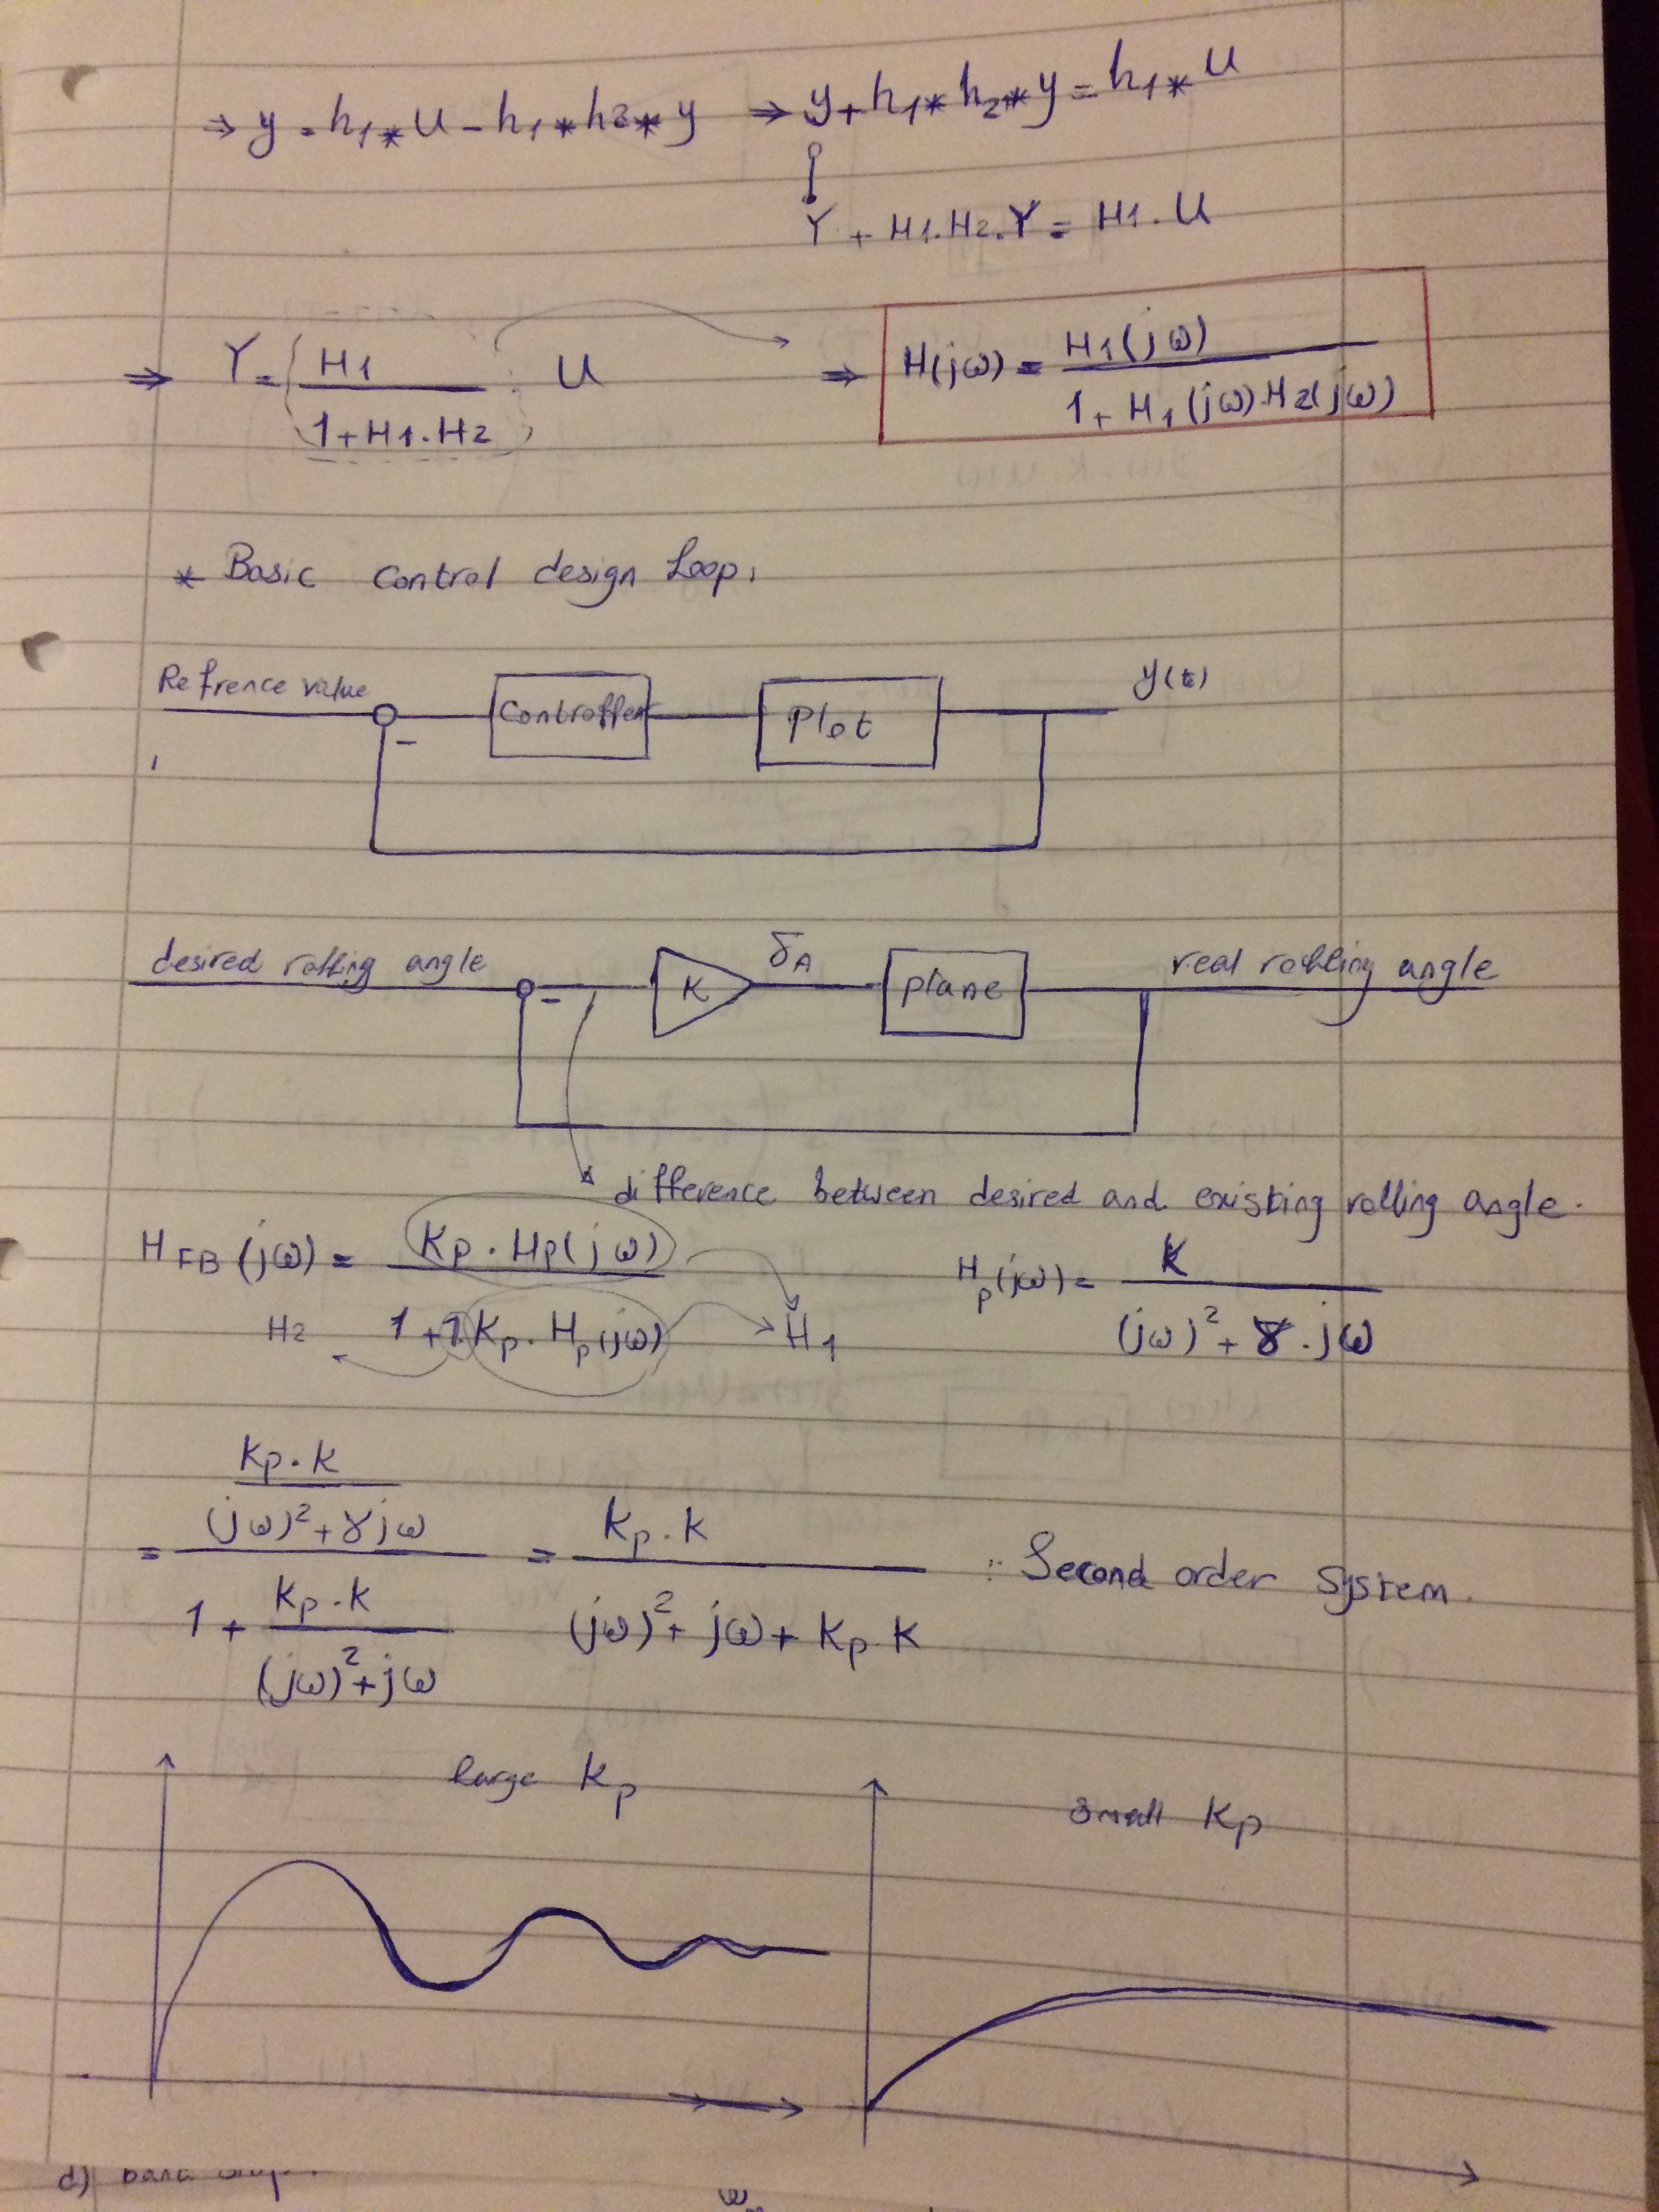 ⇒ y = h1 * u - h1 * h2 * y ⇒ y + h1 * h2 * y = h1 * u
Y + H1.H2.Y = H1.U
⇒ Y = (H1 / 1+H1.H2) . U ⇒ H(jω) = H1(jω) / 1+H1(jω).H2(jω)
* Basic Control design Loop,
Refrence value
Controller
Plot
y(t)
desired rolling angle
-
K
δA
plane
real rolling angle
difference between desired and existing rolling angle.
HFB(jω) = Kp.Hp(jω) / 1+1.Kp.Hp(jω)
H2
H1
Hp(jω) = K / (jω)²+γ.jω
= (Kp.K / (jω)²+γjω) / (1 + Kp.K / (jω)²+jω) = Kp.K / (jω)²+jω+Kp.K : Second order system.
large Kp
small Kp
d)